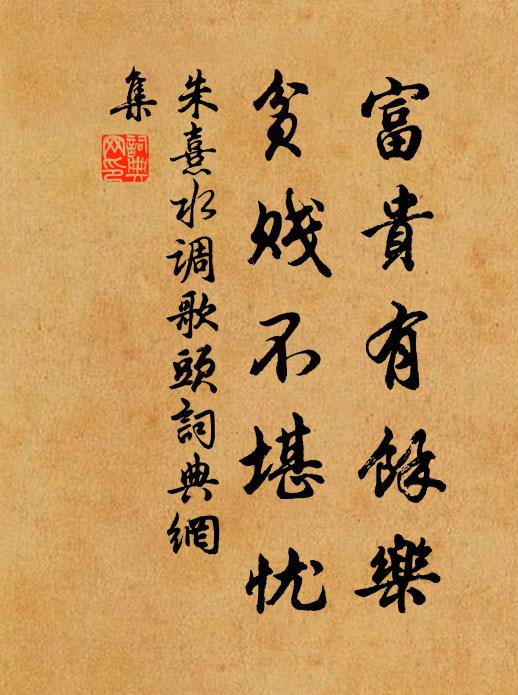 富貴有餘樂
貧賤不堪忧
朱熹水调歌頭詞典網
集
詞典
网印